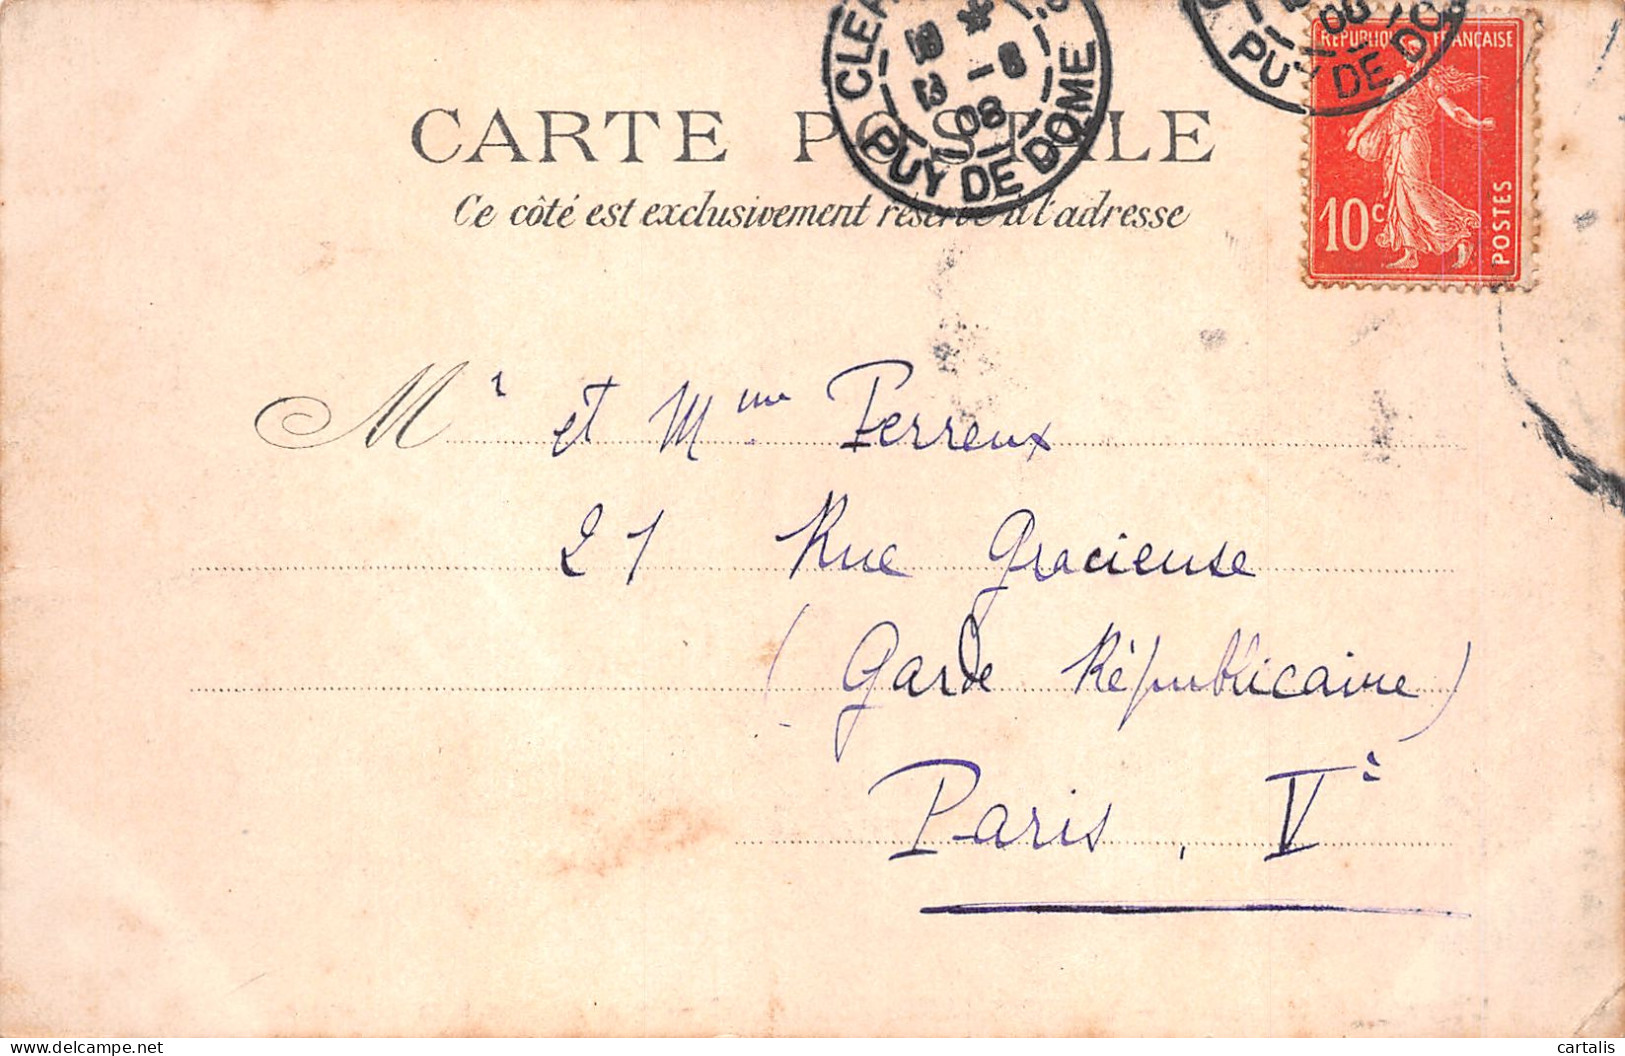 CARTE POSTALE
Ce côté est exclusivement réservé à l'adresse
PUY DE DOME
08
PUY DE DO
RÉPUBLIQUE FRANÇAISE
10c
POSTES
Mr et Mme Perreux
21 Rue Gracieuse
(Garde Républicaine)
Paris, Ve
delcampe.net
cartalis